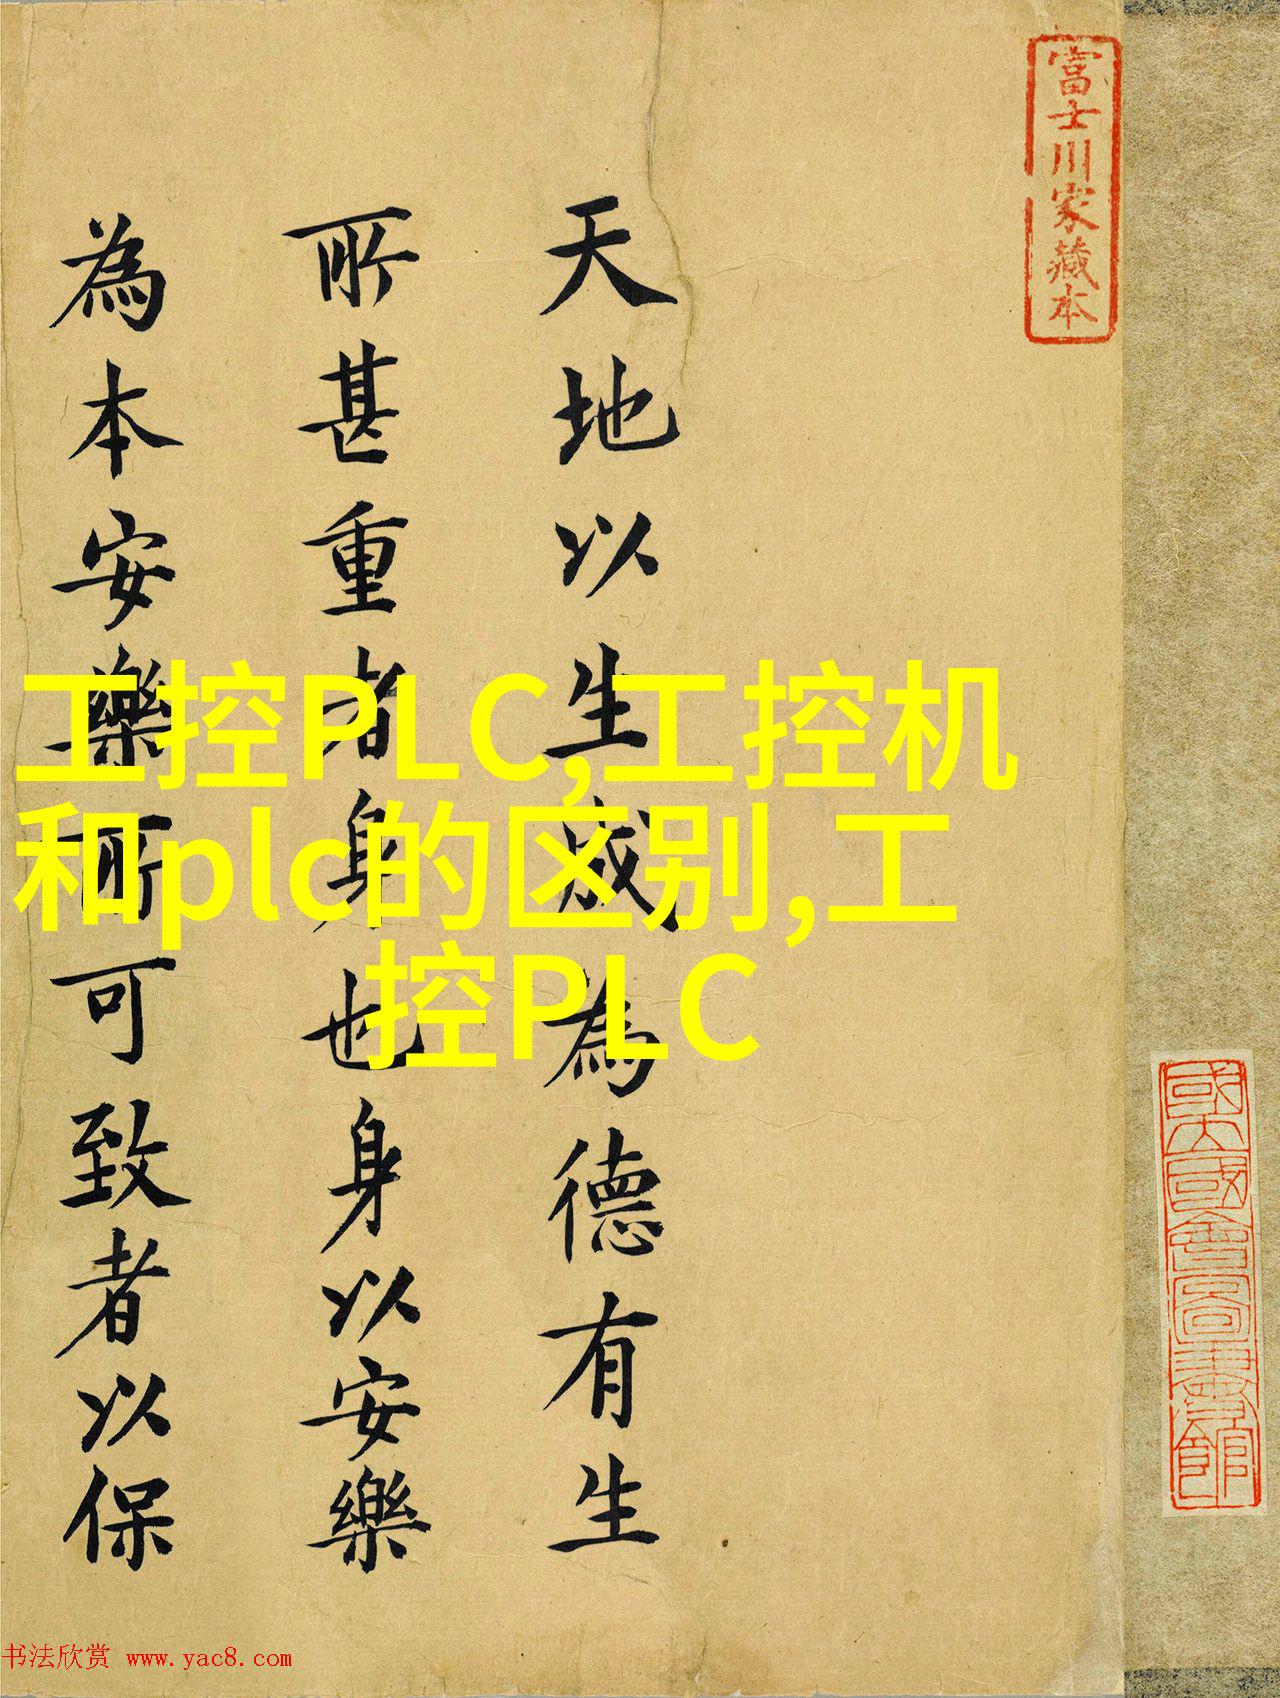 富士川家藏本
天地以生成為德有生
所甚重者身也身以安樂
為本安樂所可致者以保
工控PLC,工控机
和plc的区别,工
控PLC
书法欣赏 www.yac8.com